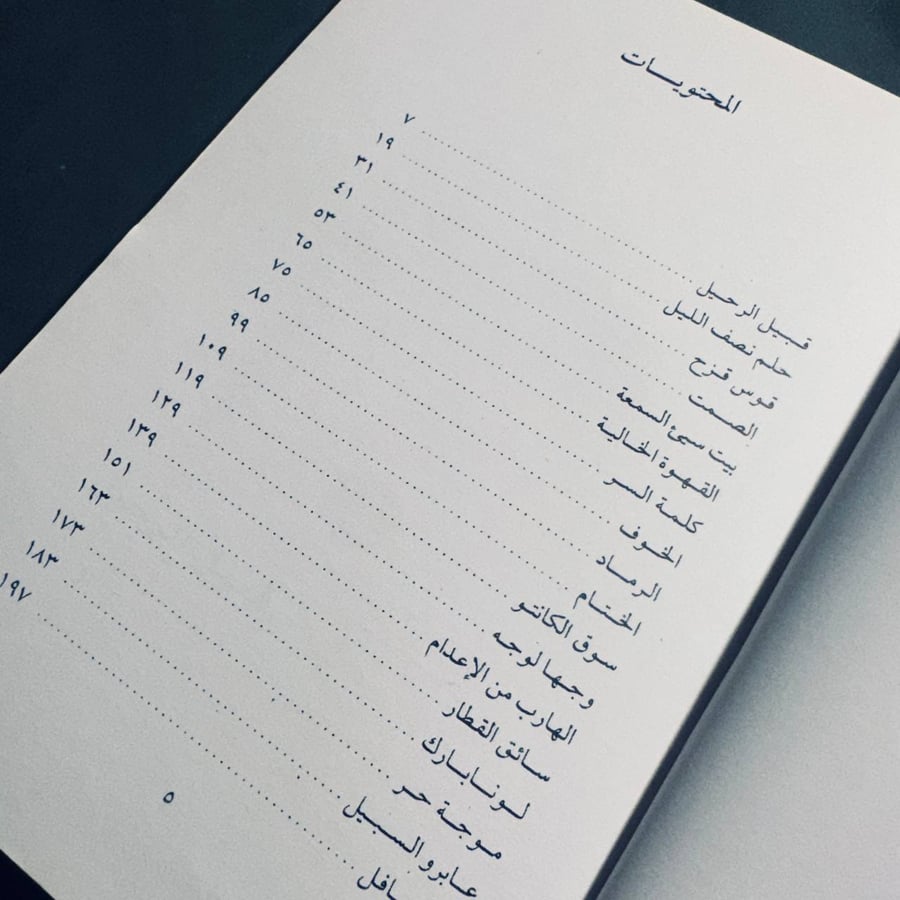 المحتويات
قبيل الرحيل ٧
حلم نصف الليل ١٩
قوس قزح ٣١
الصمت ٤١
بيت سيئ السمعة ٥٣
القهوة الخالية ٦٥
كلمة السر ٧٥
الخوف ٨٥
الرماد ٩٩
الختام ١٠٩
سوق الكانتو ١١٩
وجها لوجه ١٢٩
الهارب من الإعدام ١٣٩
سائق القطار ١٥١
لونابارك ١٦٣
موجة حر ١٧٣
عابرو السبيل ١٨٣
١٩٧
٥